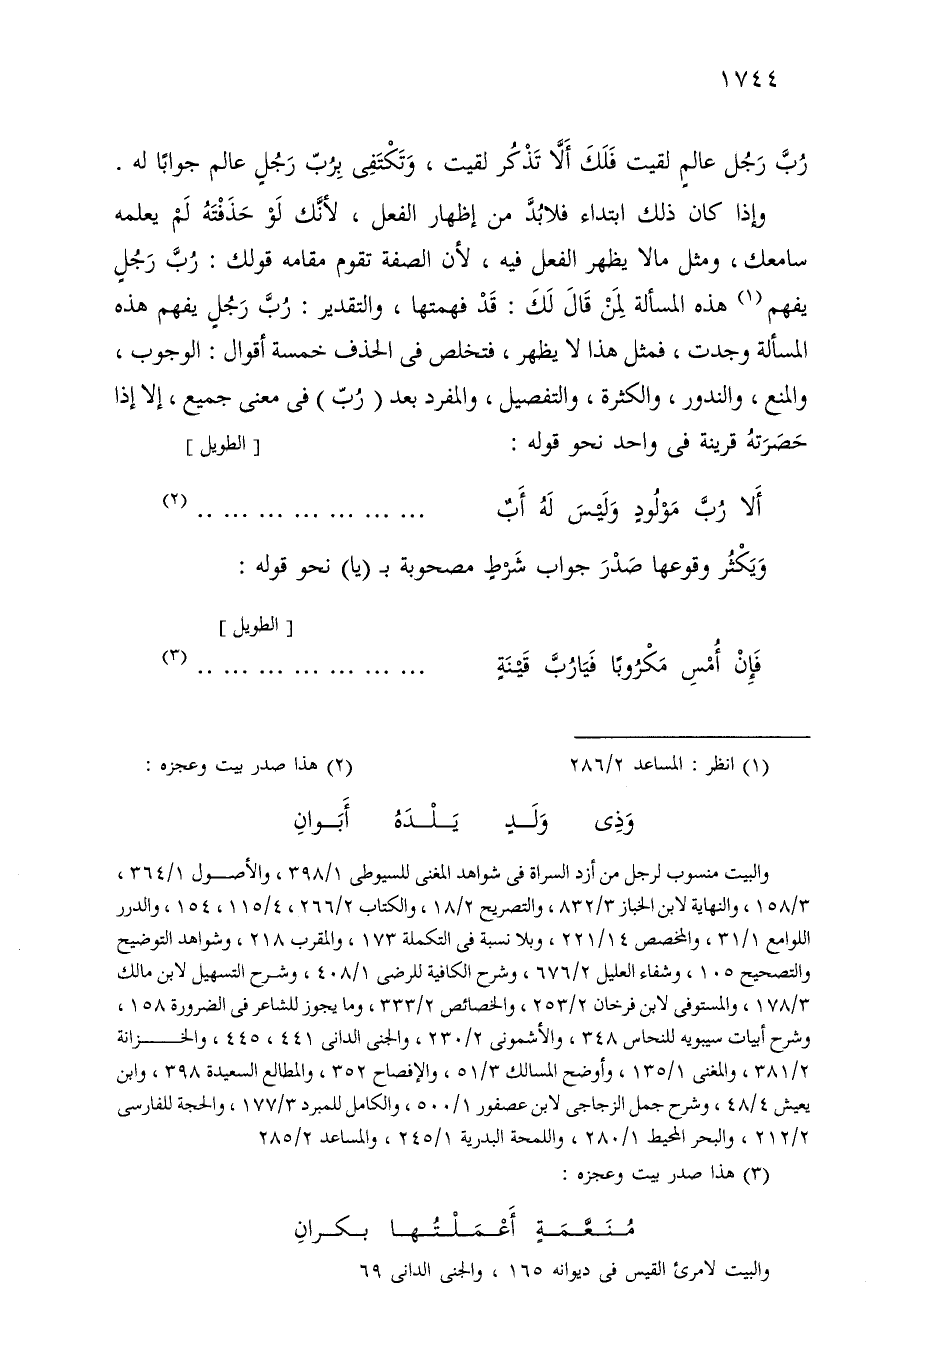 ١٧٤٤
رُبَّ رَجُلٍ عالمٍ لقيت فَلَكَ أَلَّا تَذْكُر لقيت ، وَتَكْتَفِى بِرُبّ رَجُلٍ عالم جوابًا له .
وإذا كان ذلك ابتداء فلابُدَّ من إظهار الفعل ، لأنَّك لَوْ حَذَفْتَهُ لَمْ يعلمه
سامعك ، ومثل مالا يظهر الفعل فيه ، لأن الصفة تقوم مقامه قولك : رُبَّ رَجُلٍ
يفهم (١) هذه المسألة لِمَنْ قَالَ لَكَ : قَدْ فهمتها ، والتقدير : رُبَّ رَجُلٍ يفهم هذه
المسألة وجدت ، فمثل هذا لا يظهر ، فتخلص فى الحذف خمسة أقوال : الوجوب ،
والمنع ، والندور ، والكثرة ، والتفصيل ، والمفرد بعد ( رُبّ ) فى معنى جميع ، إلا إذا
حَصَرَتهُ قرينة فى واحد نحو قوله : [ الطويل ]
أَلا رُبَّ مَوْلُودٍ وَلَيْسَ لَهُ أَبٌ ... ... ... ... ... ... .. (٢)
وَيَكْثُر وقوعها صَدْرَ جواب شَرْطٍ مصحوبة بـ (يا) نحو قوله :
[ الطويل ]
فَإِنْ أُمْسِ مَكْرُوبًا فَيَارُبَّ قَيْنَةٍ ... ... ... ... ... ... .. (٣)
(١) انظر : المساعد ٢٨٦/٢ (٢) هذا صدر بيت وعجزه :
وَذِى وَلَـدٍ يَـلْـدَهُ أَبَـوانِ
والبيت منسوب لرجل من أزد السراة فى شواهد المغنى للسيوطى ٣٩٨/١ ، والأصـول ٣٦٤/١ ،
١٥٨/٣ ، والنهاية لابن الخباز ٨٣٢/٣ ، والتصريح ١٨/٢ ، والكتاب ٢٦٦/٢ ، ١١٥/٤ ، ١٥٤ ، والدرر
اللوامع ٣١/١ ، والمخصص ٢٢١/١٤ ، وبلا نسبة فى التكملة ١٧٣ ، والمقرب ٢١٨ ، وشواهد التوضيح
والتصحيح ١٠٥ ، وشفاء العليل ٦٧٦/٢ ، وشرح الكافية للرضى ٤٠٨/١ ، وشرح التسهيل لابن مالك
١٧٨/٣ ، والمستوفى لابن فرخان ٢٥٣/٢ ، والخصائص ٣٣٣/٢ ، وما يجوز للشاعر فى الضرورة ١٥٨ ،
وشرح أبيات سيبويه للنحاس ٣٤٨ ، والأشمونى ٢٣٠/٢ ، والجنى الدانى ٤٤١ ، ٤٤٥ ، والخـــزانة
٣٨١/٢ ، والمغنى ١٣٥/١ ، وأوضح المسالك ٥١/٣ ، والإفصاح ٣٥٢ ، والمطالع السعيدة ٣٩٨ ، وابن
يعيش ٤٨/٤ ، وشرح جمل الزجاجى لابن عصفور ٥٠٠/١ ، والكامل للمبرد ١٧٧/٣ ، والحجة للفارسى
٢١٢/٢ ، والبحر المحيط ٢٨٠/١ ، واللمحة البدرية ٢٤٥/١ ، والمساعد ٢٨٥/٢
(٣) هذا صدر بيت وعجزه :
مُـنَـعَّـمَـةٍ أَعْـمَـلْـتُـهـا بـكـرانِ
والبيت لامرئ القيس فى ديوانه ١٦٥ ، والجنى الدانى ٦٩